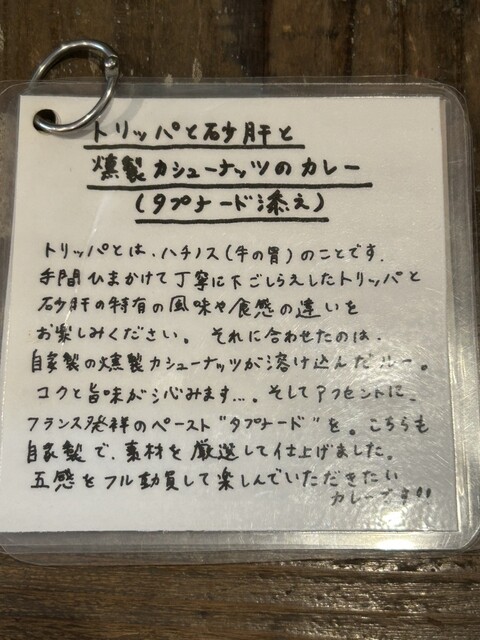 トリッパと砂肝と
燻製カシューナッツのカレー
(タプナード添え)
トリッパとは、ハチノス(牛の胃)のことです。
手間ひまかけて丁寧に下ごしらえしたトリッパと
砂肝の特有の風味や食感の違いを
お楽しみください。それに合わせたのは、
自家製の燻製カシューナッツが溶け込んだルー。
コクと旨味が沁みます…。そしてアクセントに、
フランス発祥のペースト"タプナード"を。こちらも
自家製で、素材を厳選して仕上げました。
五感をフル動員して楽しんでいただきたい
カレーです!!